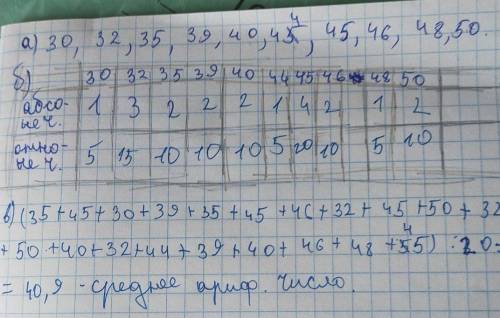 а) 30, 32, 35, 39, 40, 44, 45, 46, 48, 50.
б) 30 32 35 39 40 44 45 46 48 50
абсо- 1 3 2 2 2 1 4 2 1 2
не ч.
отно- 5 15 10 10 10 5 20 10 5 10
не ч.
в) (35+45+30+39+35+45+46+32+45+50+32
+50+40+32+44+39+40+46+48+45) : 20=
= 40,9 - среднее ариф. число.